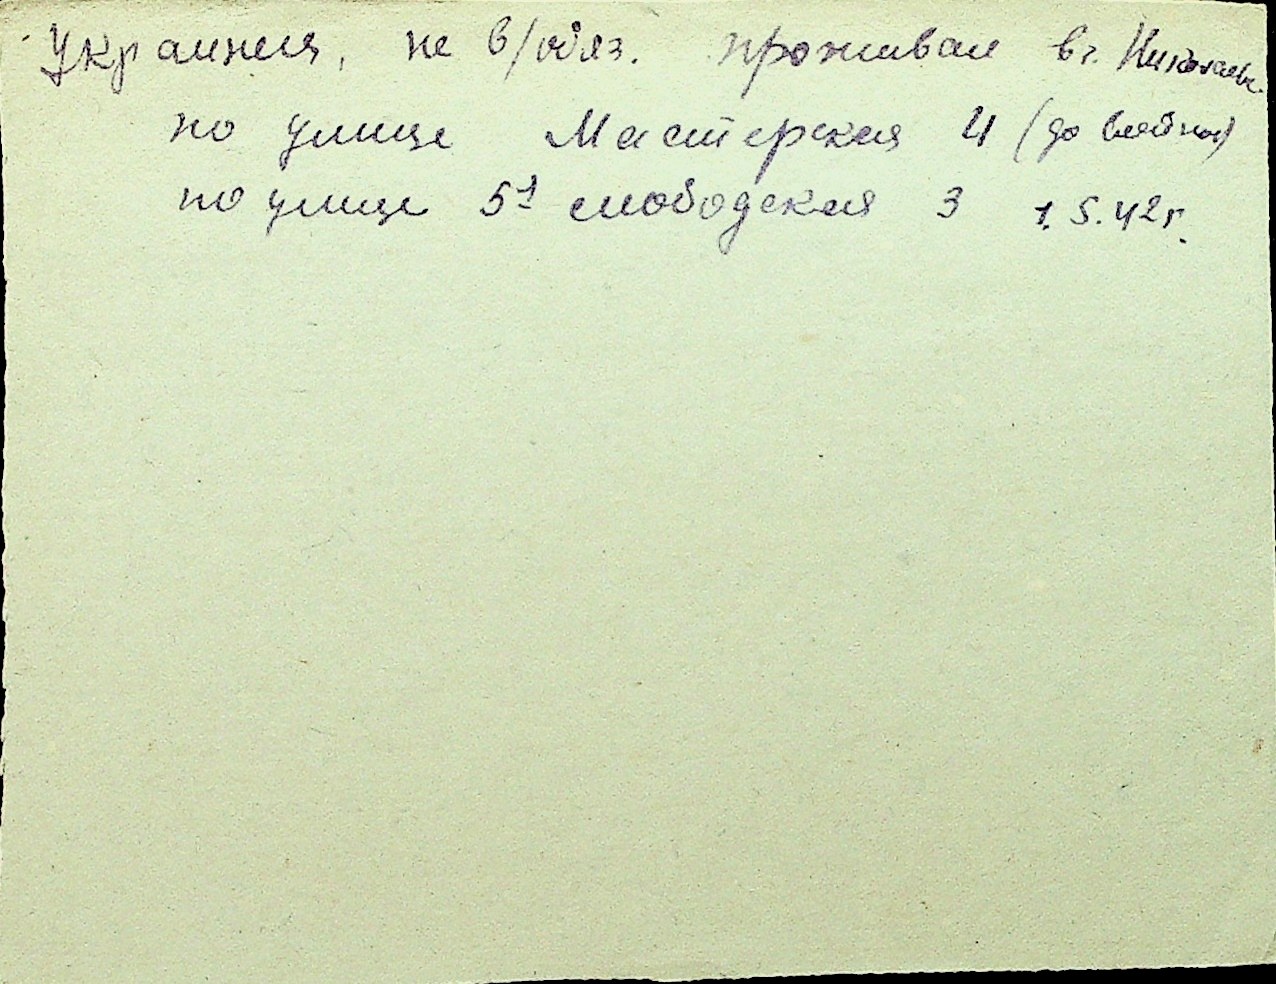 Украинец, не в/обяз. проживал в г. Николаеве
по улице Мастерская 4 (до войны)
по улице 5я слободская 3 1.5.42г.